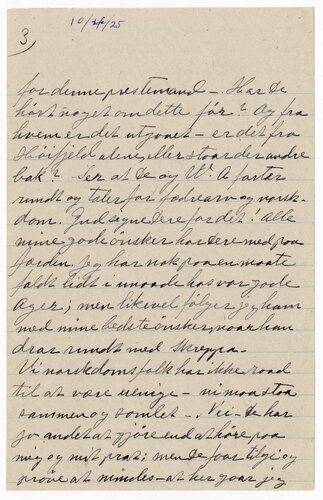 10/4/25
3)
for denne prestemand – . Har De
hört noget om dette för? Og fra
hvem er det utgaaet – er det fra
Höifjeld alene eller staar der andre
bak? Ser at De og W. A. farter
rundt og taler for fædrearv og norsk-
dom. Gud signe Dere for det! Alle
mine gode önsker har Dere med paa
færden. Jeg har nok paa en maate
faldt lidt i unaade hos vor gode
Ager; men likevel fölger jeg ham
med mine bedste önsker, naar han
drar rundt med Skreppa.
Vi norskdomsfolk har ikke raad
til at være uenige – vi maa staa
sammen og samlet. – Nei – De har
jo andet at gjöre end at höre paa
mig og mit prat; men De faar tilgi og
pröve at mindes – at her gaar jeg